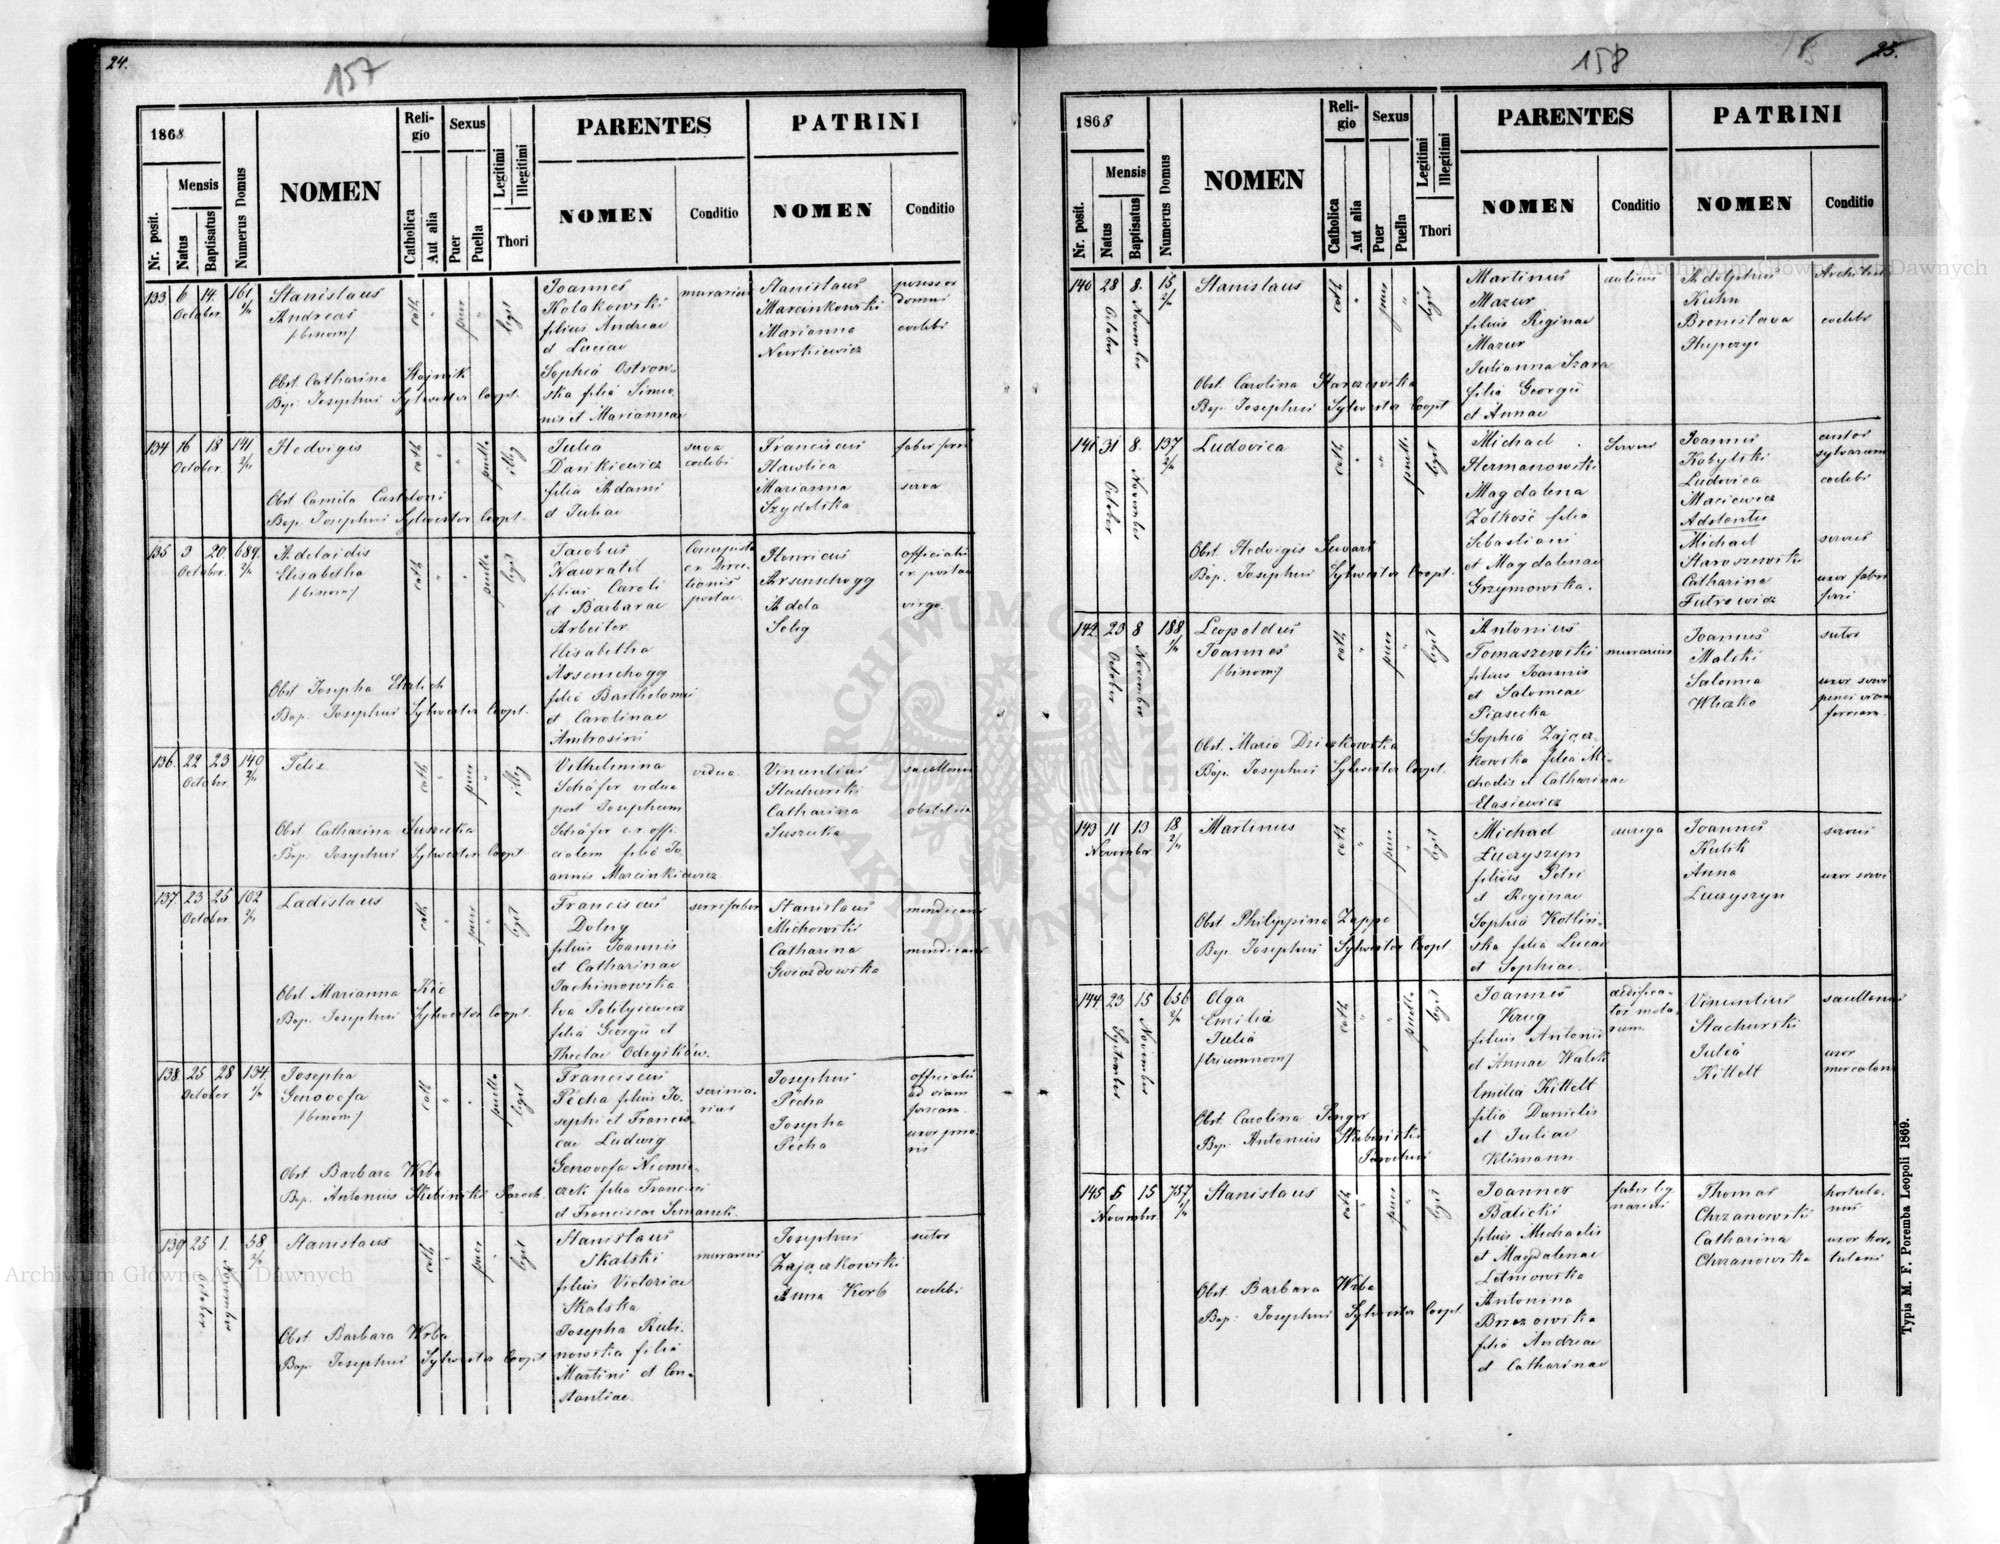 24.
157
1868
Nr. posit.
Mensis
Natus
Baptisatus
Numerus Domus
NOMEN
Religio
Catholica
Aut alia
Sexus
Puer
Puella
Legitimi
Illegitimi
Thori
PARENTES
NOMEN
Conditio
PATRINI
NOMEN
Conditio
133 6 14. 161
October 2/4
Stanislaus
Andreas
/:binom:/
cath " puer " legit
Obst. Catharina Stojnik
Bap. Josephus Sylwester Coopt.
Joannes
Kolakowski
filius Andreae
et Luciae
Sophia Ostrow-
ska filia Simeo-
nis et Mariannae
murarius
Stanislaus
Marcinkowski
Marianna
Nurkiewicz
possessor
domus
coelebs
134 16 18 141
October 2/4
Hedvigis
cath " " puella illeg
Obst Camila Casteloni
Bap. Josephus Sylwester Coopt.
Julia
Dankiewicz
filia Adami
et Juliae
serva
coelebs
Franciscus
Hawlica
Marianna
Szydelska
faber ferri
serva
135 3 20 689.
October. 2/4
Adelaidis
Elisabetha
/:binom:/
cath " " puella legit
Obst Josepha Ehrlich
Bap. Josephus Sylwester Coopt.
Jacobus
Nawratil
filius Caroli
et Barbarae
Arbeiter
Elisabetha
Arsenschegg
filia Bartholomei
et Carolinae
Ambrosini
Henricus
Arsenschegg
Adela
Selig
officialis
virgo.
136. 22 23 140
October 2/4
Felix
cath " puer " illeg
Obst Catharina Suszecka
Bap. Josephus Sylwester Coopt.
Vilhelmina
Schäfer vidua
post Josephum
Schäfer c.r. offi-
cialem filia Jo-
annis Marcinkiewicz
vidua
Vincentius
Stachurski
Catharina
Suszecka
sacellanus
obstetrix
137. 23 25 102
October 2/4
Ladislaus
cath " puer " legit
Obst Marianna Kic
Bap. Josephus Sylwester Coopt.
Franciscus
Dolny
filius Joannis
et Catharinae
Jachimowska
Eva Politysiewicz
filia Georgii et
Theclae Odrzików.
serrifaber
Stanislaus
Michowski
Catharina
Gwiazdowska
mendicans
mendicans
138. 25 28 134.
October 2/4
Josepha
Genovefa
/:binom:/
cath " " puella legit
Obst Barbara Wrba
Bap. Antonius Skibinski Paroch.
Franciscus
Pécha filius Jo-
sephi et Francis-
cae Ludwig
Genovefa Niemie-
czek filia Francisci
et Franciscae Semanek.
scrinia-
rius
Josephus
Pécha
Josepha
Pécha
officialis
ad viam
ferream.
139 25 1. 58
October November 2/4
Stanislaus
cath " puer " legit
Obst Barbara Wrba
Bap. Josephus Sylwester Coopt
Stanislaus
Skalski
filius Victoriae
Skalska
Josepha Rubi-
nowska filia
Martini et Con-
stantiae.
murarius
Josephus
Zajączkowski
Anna Korb
sutor
coelebs
158
25.
1868
Nr. posit.
Mensis
Natus
Baptisatus
Numerus Domus
NOMEN
Religio
Catholica
Aut alia
Sexus
Puer
Puella
Legitimi
Illegitimi
Thori
PARENTES
NOMEN
Conditio
PATRINI
NOMEN
Conditio
140 28 8. 15
October November 2/4
Stanislaus
cath " puer " legit
Obst Carolina Harczewska
Bap. Josephus Sylwester Coopt
Martinus
Mazur
filius Reginae
Mazur
Julianna Szara
filia Georgii
et Annae
Adolphus
Kuhn
Bronislava
Stupczye
coelebs
141 31 8. 137
October November 2/4
Ludovica
cath " " puella legit
Obst Hedvigis Siwart
Bap. Josephus Sylwester Coopt.
Michael
Hermanowski
Magdalena
Zolkość filia
Sebastiani
et Magdalenae
Grzymowska.
Servus
Joannes
Kobylski
Ludovica
Maciewicz
Adstantes
Michael
Staroszewski
Catharina
Futrowicz
custos
sylvarum
coelebs
servus
uxor fabri
ferri
142. 23 8 188
October November 2/4
Leopoldus
Joannes
/:binom:/
cath " puer " legit
Obst Maria Dzieszkowska
Bap. Josephus Sylwester Coopt.
Antonius
Tomaszewski
filius Joannis
et Salomeae
Piasecka
Sophia Zającz-
kowska filia Mi-
chaelis et Catharinae
Elasiewicz
murarius
Joannes
Malski
Salomea
Wliczko
sutor
uxor servi
penes viam
ferream.
143 11 13 18
November 2/4
Martinus
cath " puer " legit
Obst Philippina Zappe
Bap. Josephus Sylwester Coopt
Michael
Łuczyszyn
filius Petri
et Reginae
Sophia Kotlin-
ska filia Lucae
et Sophiae.
auriga
Joannes
Kulik
Anna
Łuczyszyn
servus
uxor servi
144 23 15 656
September November 2/4
Olga
Emilia
Julia
/:triumnom:/
cath " " puella legit
Obst Carolina Singer
Bap. Antonius Skibinski
Parochus
Joannes
Krug
filius Antonii
et Annae Walek
Emilia Kittelt
filia Danielis
et Juliae
Klimann
aedifica-
tor mola-
rum.
Vincentius
Stachurski
Julia
Kittelt
sacellanus
uxor
mercatoris
145 5 15 787
November. 2/4
Stanislaus
cath " puer " legit
Obst. Barbara Wrba
Bap. Josephus Sylwester Coopt
Joannes
Balicki
filius Michaelis
et Magdalenae
Letniowska
Antonina
Brzozowska
filia Andreae
et Catharinae
faber lig-
narius
Thomas
Chrzanowski
Catharina
Chrzanowska
hortula-
nus
uxor hor-
tulani
Typis M. F. Poremba Leopoli 1869.
Archiwum Główne Akt Dawnych
Archiwum Główne Akt Dawnych
ARCHIWUM GŁÓWNE AKT DAWNYCH